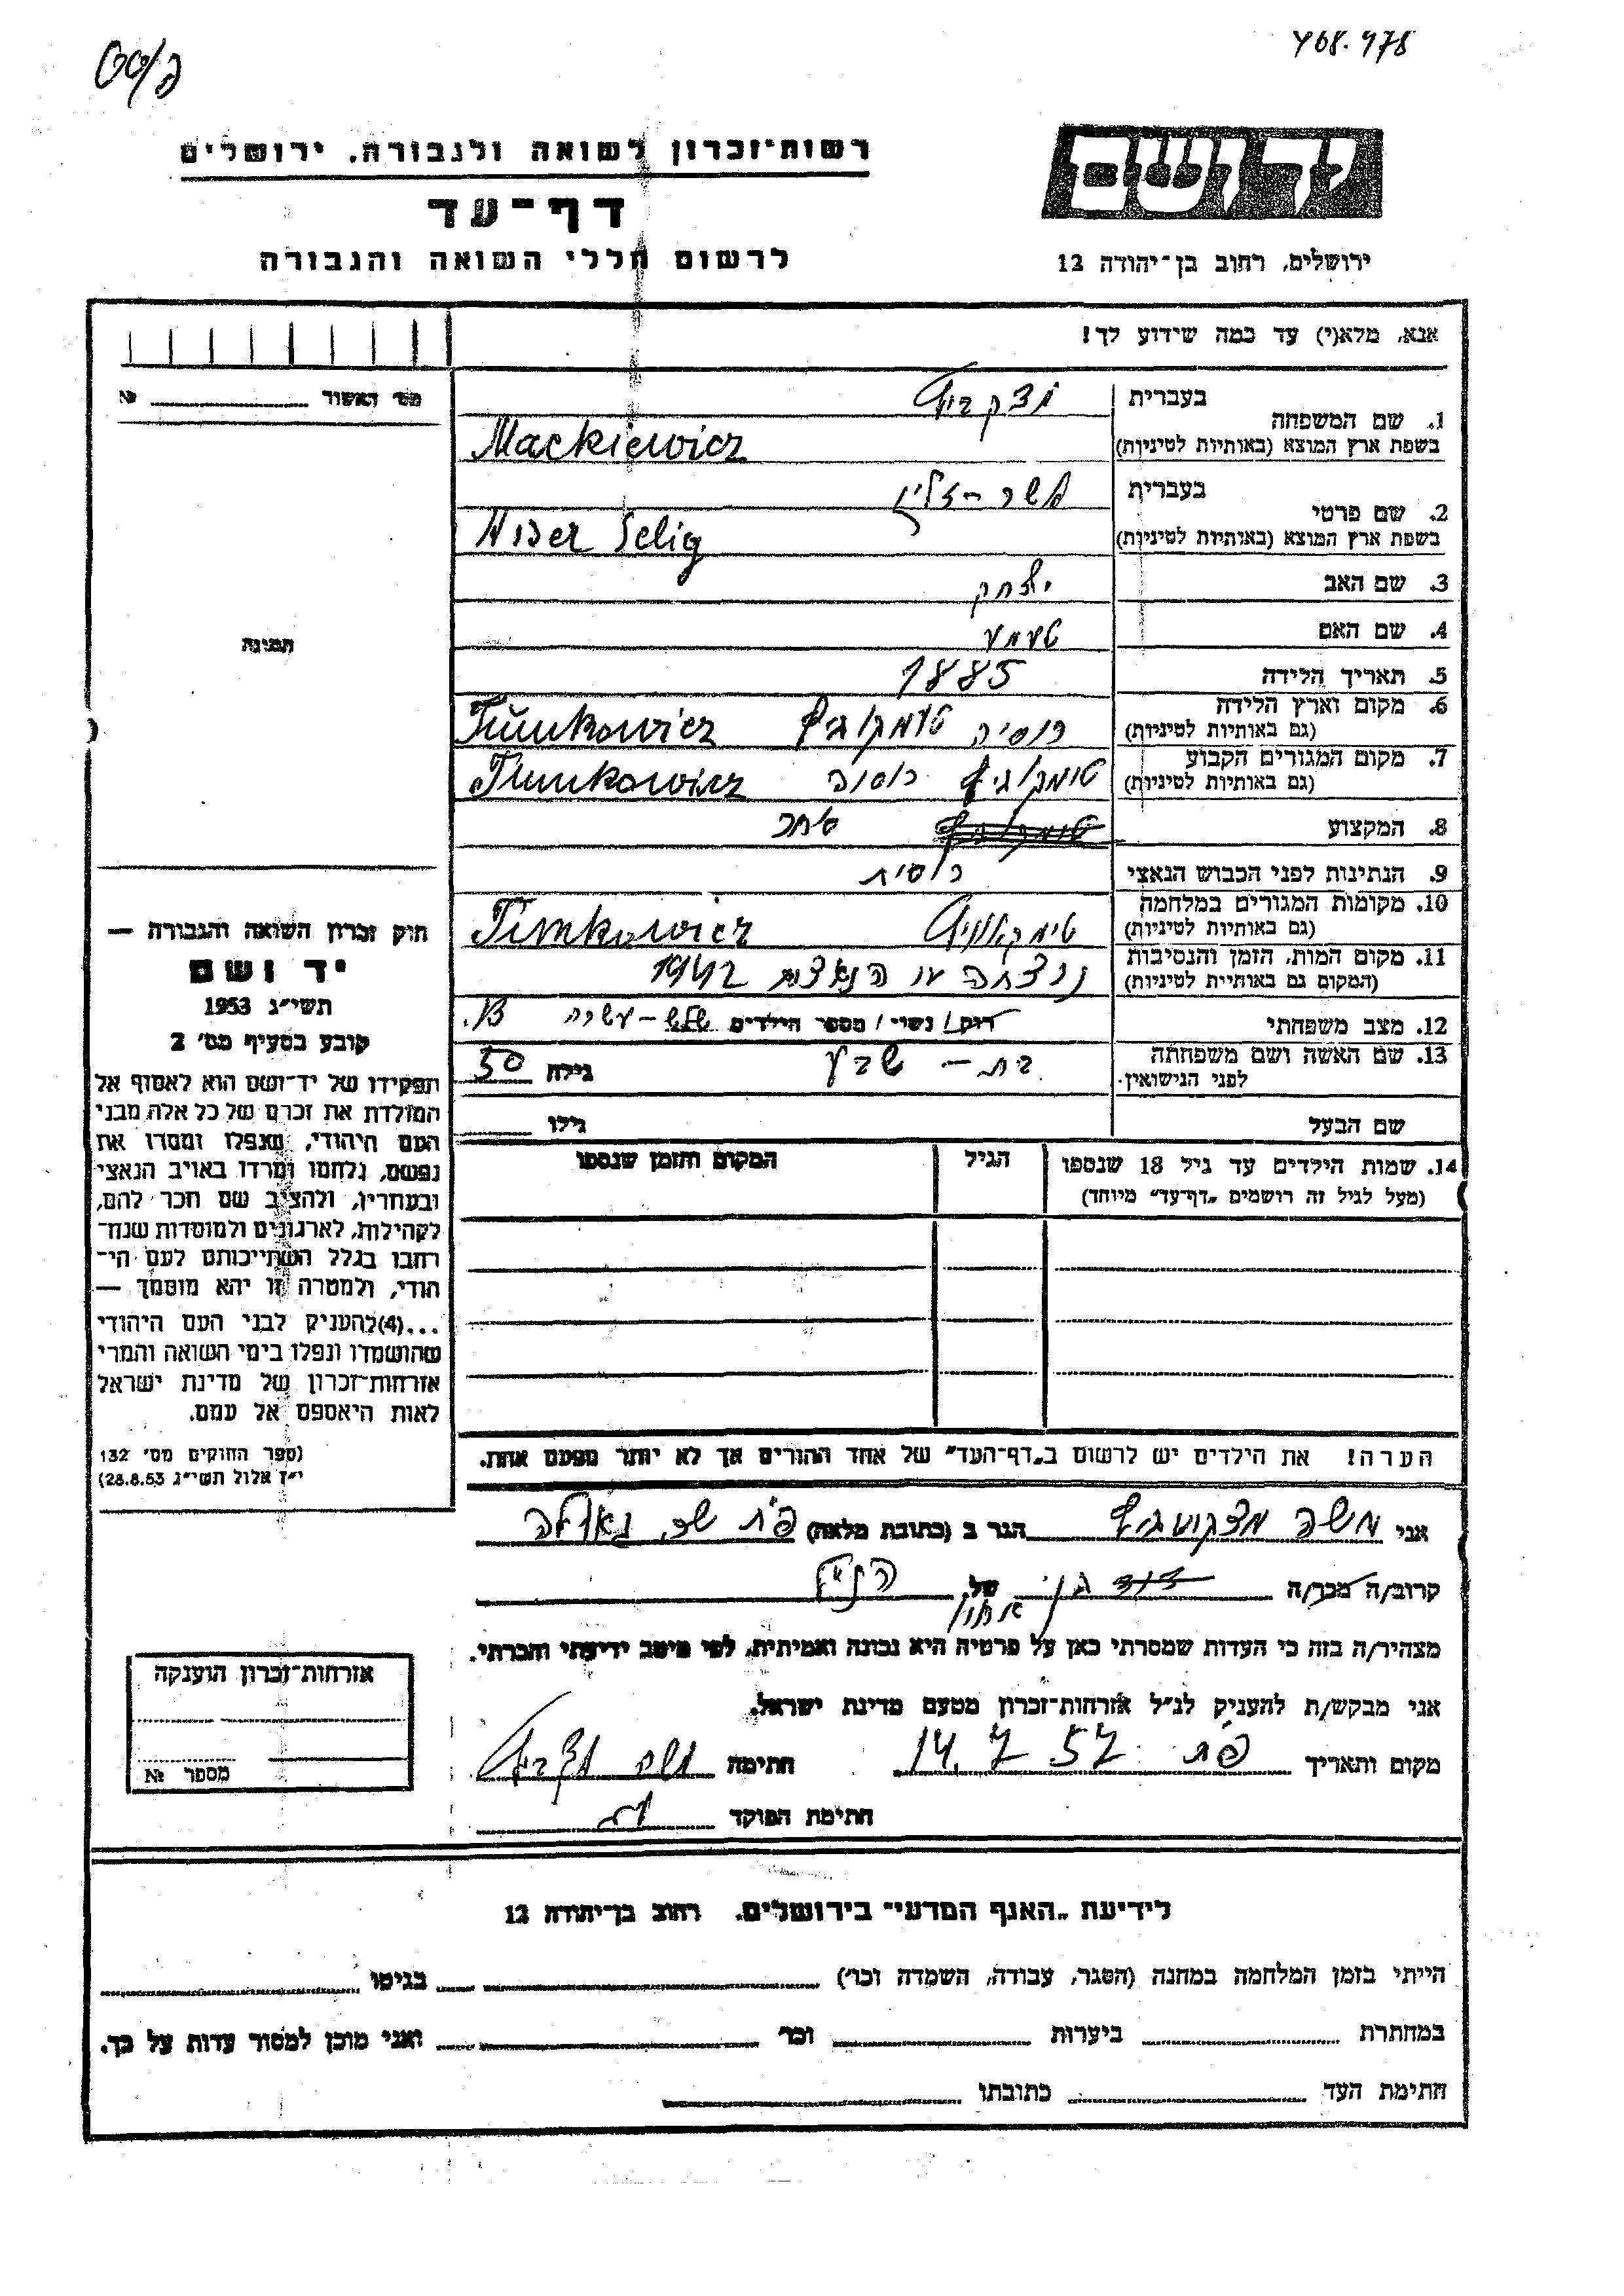 468.478
רשות־זכרון לשואה ולגבורה, ירושלים
דף־עד
לרשום חללי השואה והגבורה
יד ושם
ירושלים, רחוב בן־יהודה 12
אנא, מלא(י) עד כמה שידוע לך!
מס' האשור №
1. שם המשפחה
בעברית
בשפת ארץ המוצא (באותיות לטיניות)
Mackiewicz
2. שם פרטי
בעברית אשר - זליג
בשפת ארץ המוצא (באותיות לטיניות)
Selig
3. שם האב יצחק
4. שם האם
5. תאריך הלידה 1885
6. מקום וארץ הלידה רוסיה
(גם באותיות לטיניות)
7. מקום המגורים הקבוע
(גם באותיות לטיניות)
8. המקצוע סוחר
9. הנתינות לפני הכבוש הנאצי רוסית
10. מקומות המגורים במלחמה Timkowicz
(גם באותיות לטיניות)
11. מקום המות, הזמן והנסיבות 1942
(המקום גם באותיות לטיניות)
12. מצב משפחתי רוק / נשוי / מספר הילדים שלש-עשרה 13.
13. שם האשה ושם משפחתה בת - שבע גילה 50
לפני הנישואין
שם הבעל גילו
14. שמות הילדים עד גיל 18 שנספו הגיל המקום והזמן שנספו
(מעל לגיל זה רושמים "דף־עד" מיוחד)
הערה! את הילדים יש לרשום ב"דף־העד" של אחד ההורים אך לא יותר מפעם אחת.
תמונה
חוק זכרון השואה והגבורה —
יד ושם
תשי"ג 1953
קובע בסעיף מס' 2
תפקידו של יד־ושם הוא לאסוף אל
המולדת את זכרם של כל אלה מבני
העם היהודי, שנפלו ומסרו את
נפשם, נלחמו ומרדו באויב הנאצי
ובעוזריו, ולהציב שם וזכר להם,
לקהילות, לארגונים ולמוסדות שנח־
רבו בגלל השתייכותם לעם הי־
הודי, ולמטרה זו יהא מוסמך —
...(4)להעניק לבני העם היהודי
שהושמדו ונפלו בימי השואה והמרי
אזרחות־זכרון של מדינת ישראל
לאות היאספם אל עמם.
(ספר החוקים מס' 132
י"ז אלול תשי"ג 28.8.53)
אני משה הגר ב (כתובת מלאה) פ"ת
קרוב/ה מכר/ה של הנ"ל
מצהיר/ה בזה כי העדות שמסרתי כאן על פרטיה היא נכונה ואמיתית, לפי מיטב ידיעתי והכרתי.
אני מבקש/ת להעניק לנ"ל אזרחות־זכרון מטעם מדינת ישראל.
מקום ותאריך פ"ת 14.7.57 חתימה
חתימת הפוקד
אזרחות־זכרון הוענקה
מספר №
לידיעת "האגף המדעי" בירושלים, רחוב בן־יהודה 12
הייתי בזמן המלחמה במחנה (הסגר, עבודה, השמדה וכו') בגיטו
במחתרת ביערות וכו' ואני מוכן למסור עדות על כך.
חתימת העד כתובתו